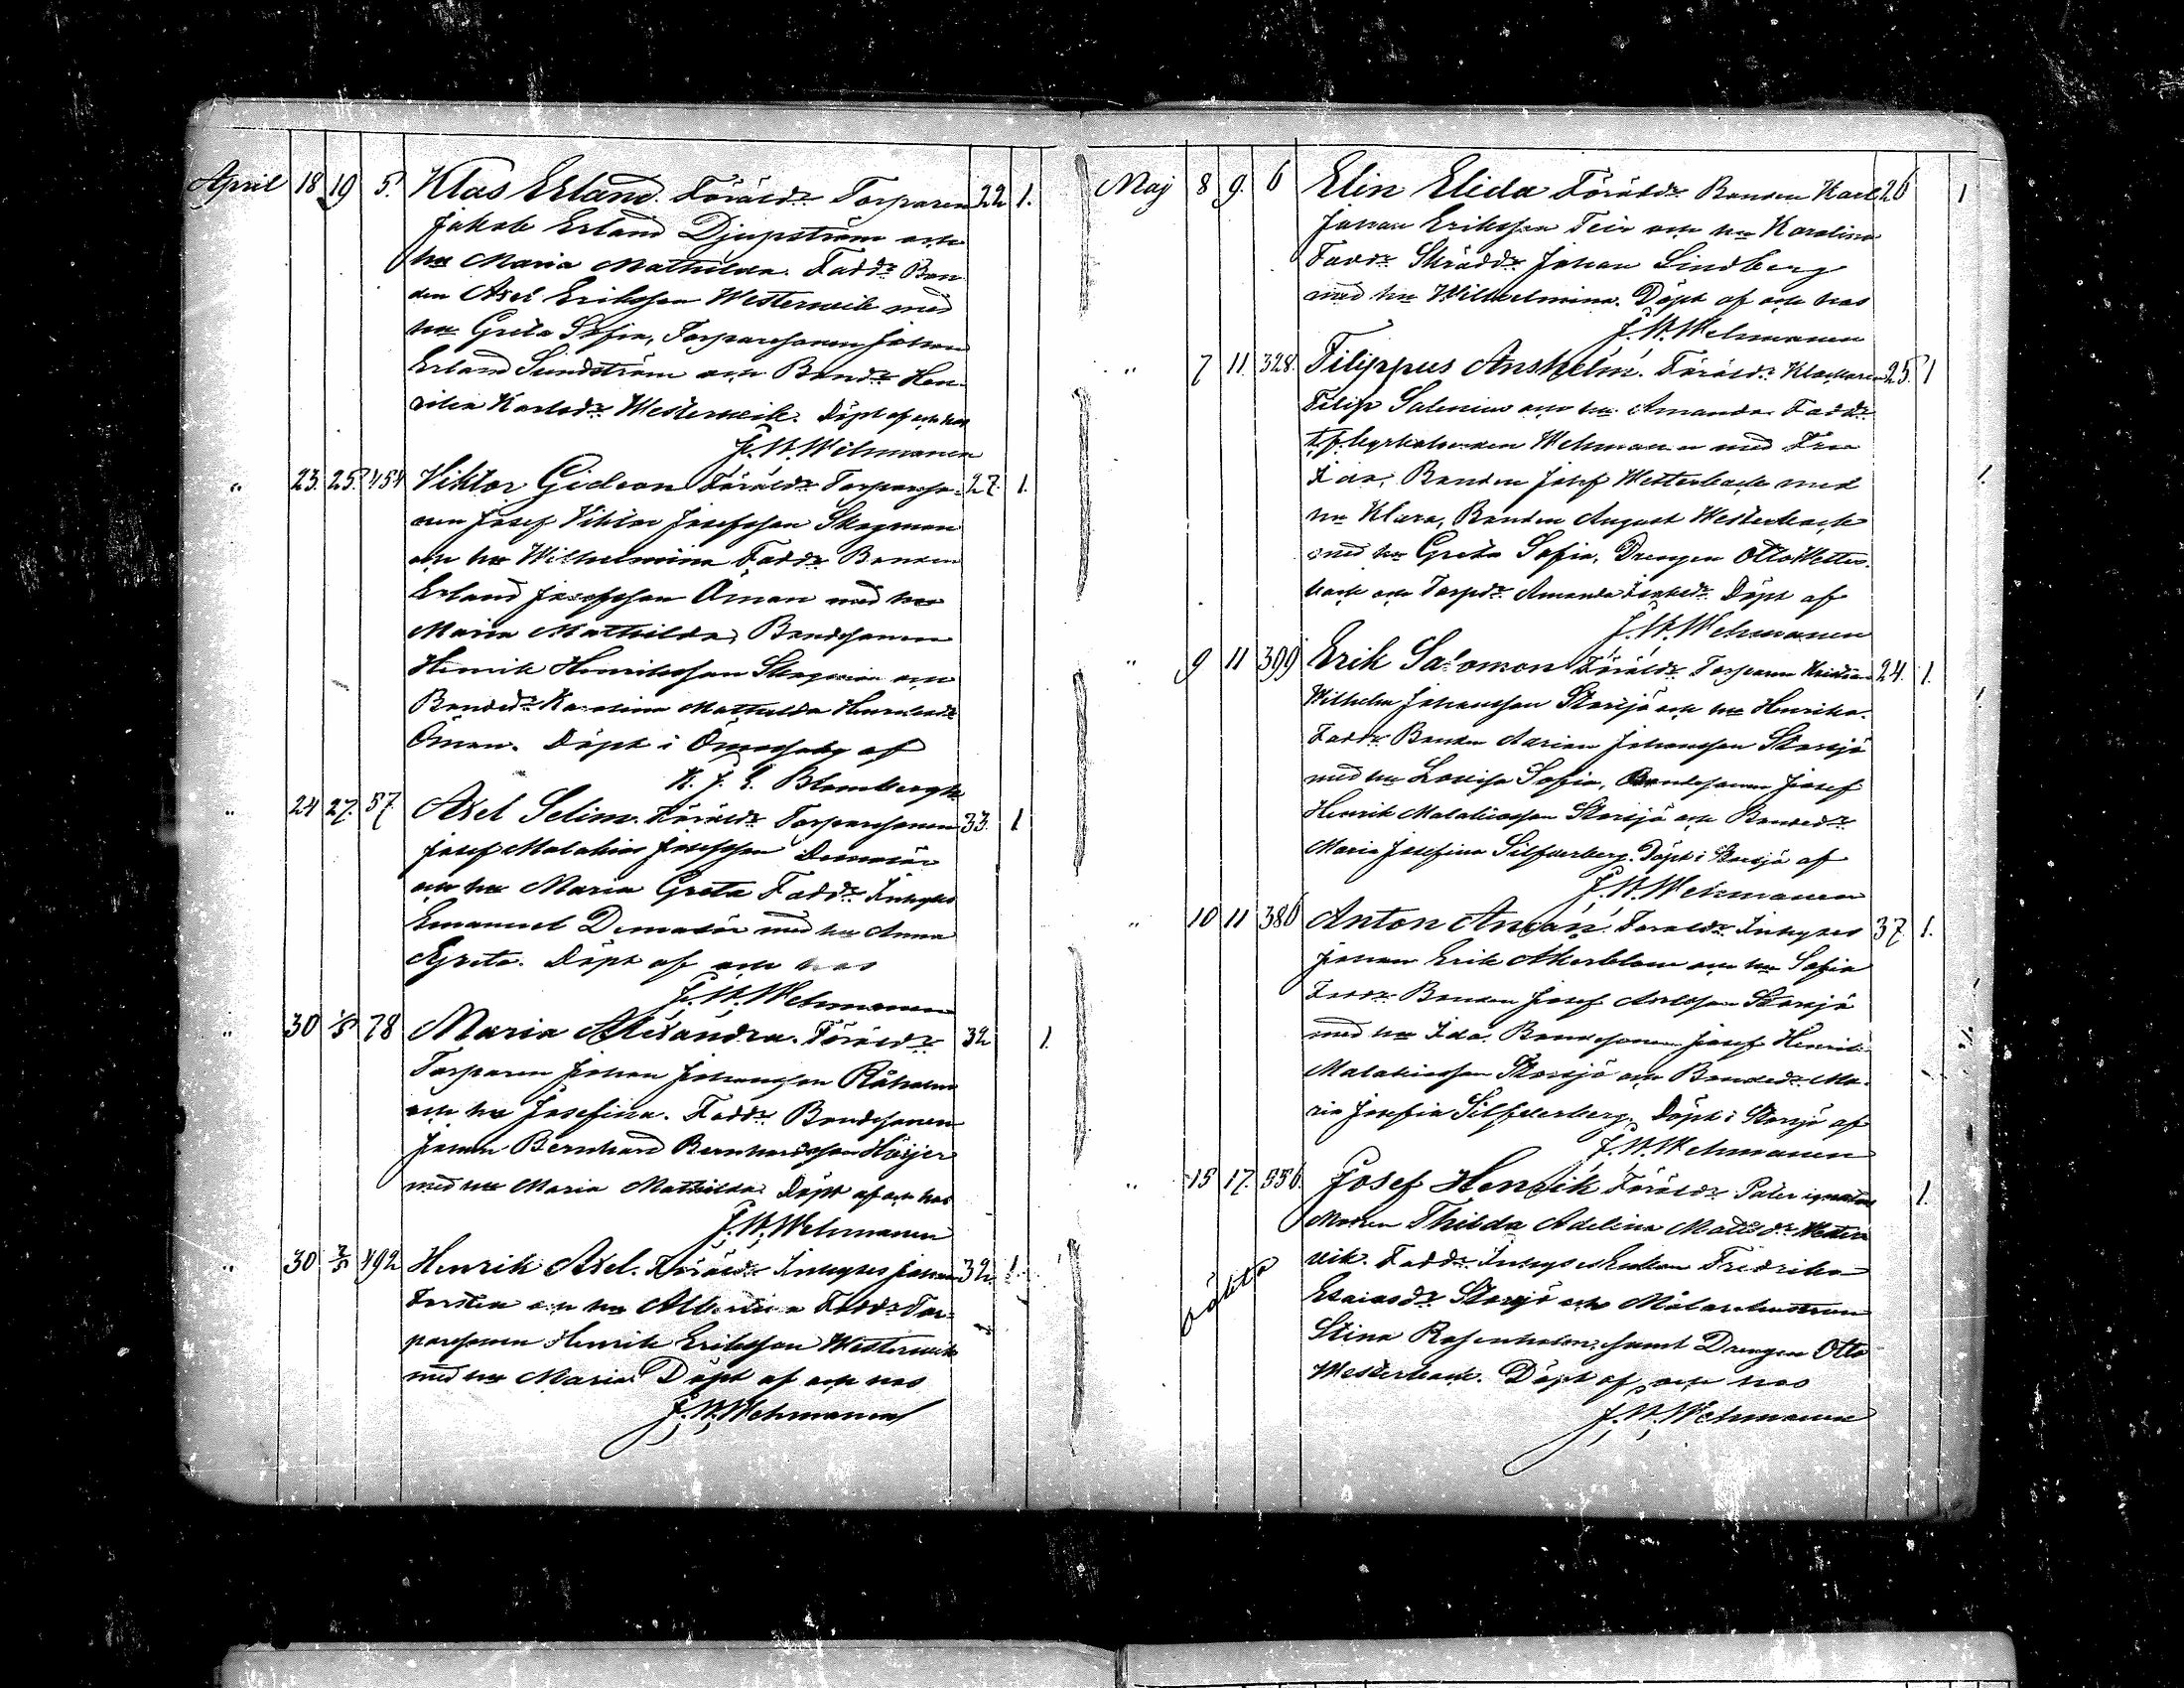 April 18 19 5. Klas Erland. Föräldr Torparen 22 1.
Jakob Erland Djupström och
hu Maria Mathilda. Faddr Bon
den Axel Eriksson Westerwik med
hu Greta Sofia, Torparesonen Johan
Erland Sundström och Bondr Hen
rika Karlsdr Westerwik. Döpt af och hos
J. W. Wehmanen
" 23. 25. 454 Viktor Gideon Föräldr Torpareso- 27. 1.
nen Josef Viktor Josefsson Skogman
och hu Wilhelmina Faddr Bonden
Erland Josefsson Öman med hu
Maria Mathilda, Bondesonen
Henrik Henriksson Skogman och
Bondedr Karolina Mathilda Henriksdr
Öman. Döpt i af
K. J. E. Blombergh
" 24 27. 57. Axel Selim. Föräldr Torparesonen 33. 1
Josef Malakias Josefsson
och hu Maria Greta Faddr Inhyses
Emanuel med hu Anna
Greta. Döpt af och hos
J. W. Wehmanen
" 30 1/5 78 Maria Alexandra. Föräldr 32 1.
Torparen Johan Johansson Råholm
och hu Josefina. Faddr Bondesonen
Johan Bernhard Bernhardsson Höijer
med hu Maria Mathilda. Döpt af och hos
J. W. Wehmanen
" 30 2/5 492 Henrik Axel. Föräldr Inhyses Johan 32 1.
och hu Faddr Tor-
paresonen Henrik Eriksson Westerwik
med hu Maria. Döpt af och hos
J. W. Wehmanen
Maj 8 9. 6 Elin Elida Föräldr Bonden Karl 26 1
Johan Eriksson Teir och hu Karolina
Faddr Skräddr Johan Lindberg
med hu Wilhelmina. Döpt af och hos
J. W. Wehmanen
" 7 11. 328. Filippus Anshelm. Föräldr Klockaren 25. 1
Filip Salenius och hu Amanda. Faddr
t.f. kyrkoherden Wehmanen med Fru
Ida, Bonden Josef Westerback med
hu Klara, Bonden August Westerback
med hu Greta Sofia, Drengen Otto Wester-
back och Torpdr Amanda Döpt af
J. W. Wehmanen
" 9 11 399 Erik Salomon Föräldr Torparen 24. 1.
Wilhelm Johansson Storsjö och hu Henrika.
Faddr Bonden Johansson Storsjö
med hu Lovisa Sofia, Bondesonen Josef
Henrik Malakiasson Storsjö och Bondedr
Maria Josefina Silfverberg. Döpt i Storsjö af
J. W. Wehmanen
" 10 11 386 Anton Aman. Föräldr Inhyses 37. 1.
Johan Erik Åkerblom och hu Sofia
Faddr Bonden Josef Storsjö
med hu Ida. Bondesonen Josef Henrik
Malakiasson Storsjö och Bondedr Ma-
ria Josefin Silfverberg. Döpt i Storsjö af
J. W. Wehmanen
" 15 17. 556. Josef Henrik Föräldr Pater ignotus 1.
Modren Thilda Adelina Matsdr Wester
wik. Faddr Inhyses Enkan Fredrika
oäkta
Esaiasdr Storsjö och Målarehustrun
Stina Rosenholm, samt Drengen Otto
Westerback. Döpt af och hos
J. W. Wehmanen